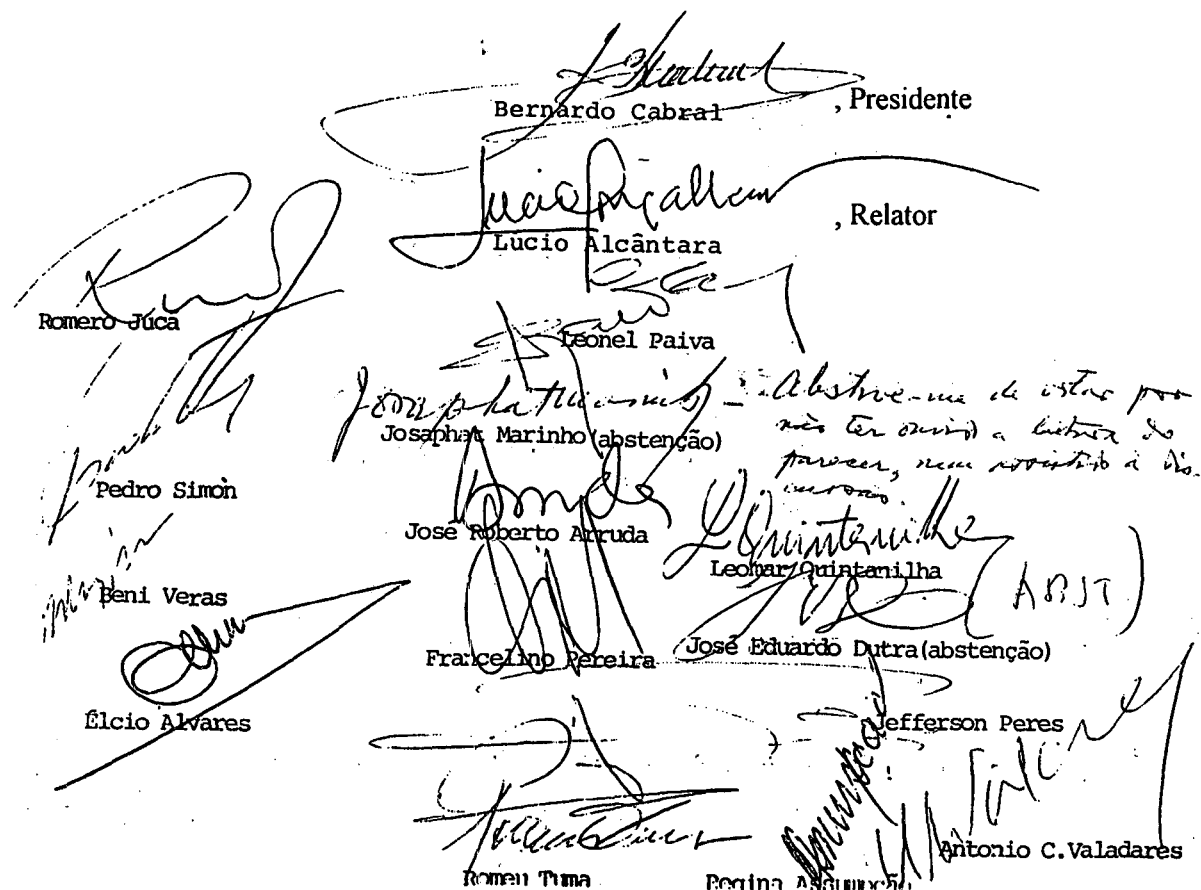 Bernardo Cabral , Presidente
Lucio Alcântara , Relator
Romero Jucá
Leonel Paiva
Josaphat Marinho(abstenção)
Abstive-me de votar por
não ter ouvido a leitura do
parecer, nem assistido à dis-
cussão.
Pedro Simon
José Roberto Arruda
L Quintanilha
Leomar Quintanilha
Beni Veras
(ABST)
Francelino Pereira
José Eduardo Dutra(abstenção)
Élcio Alvares
Jefferson Peres
Antonio C.Valadares
Romeu Tuma
Regina Assumpção